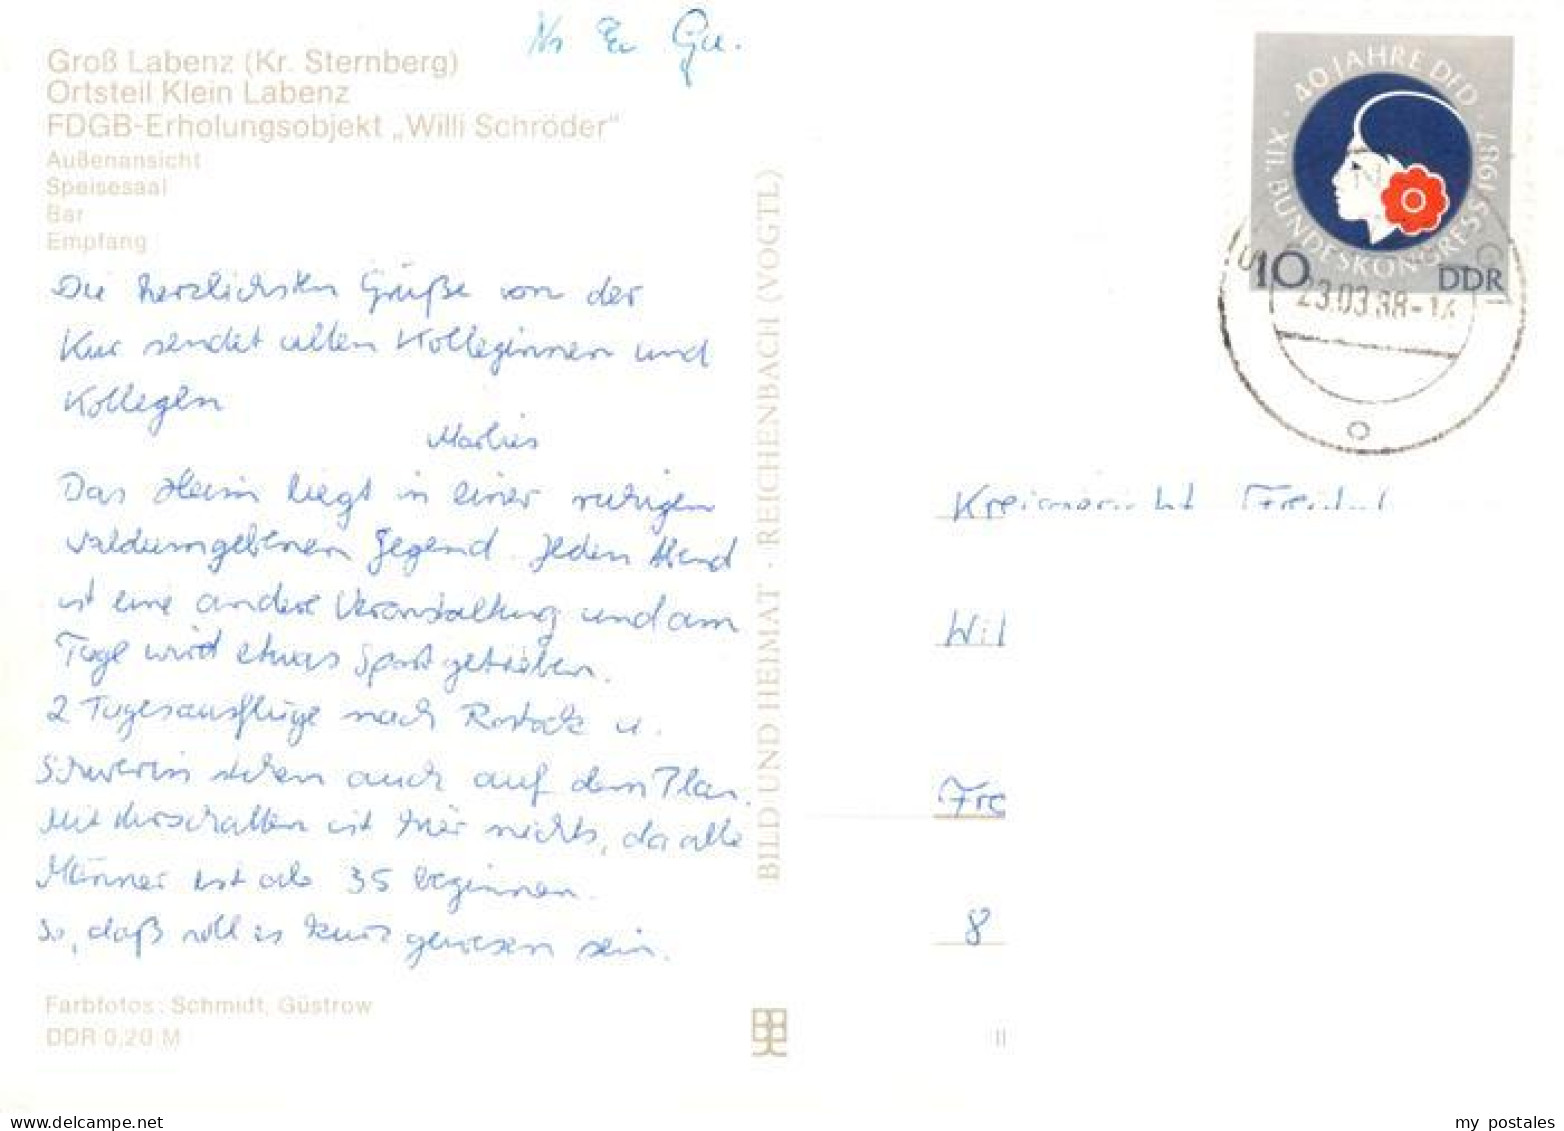 Gu.
Groß Labenz (Kr. Sternberg)
Ortsteil Klein Labenz
FDGB-Erholungsobjekt „Willi Schröder"
Außenansicht
Speisesaal
Bar
Empfang
Die herzlichsten Grüße von der
Kur sendet allen Kolleginnen und
Kollegen
Marlies
Das Heim liegt in einer ruhigen
waldumgebenen Gegend. Jeden Abend
ist eine andere Veranstaltung und am
Tage wird etwas Sport getrieben.
2 Tagesausflüge nach Rostock u.
Schwerin stehen auch auf dem Plan.
Mit Kurschatten ist hier nichts, da alle
Männer erst ab 35 beginnen.
So, daß soll es kurz gewesen sein.
Farbfotos: Schmidt, Güstrow
DDR 0,20 M
BILD UND HEIMAT · REICHENBACH (VOGTL)
XII. BUNDESKONGRESS · 40 JAHRE DFD · 1987
10 DDR
23.03.88-18
Kreisgericht Freital
Wil
Fre
8
my postales